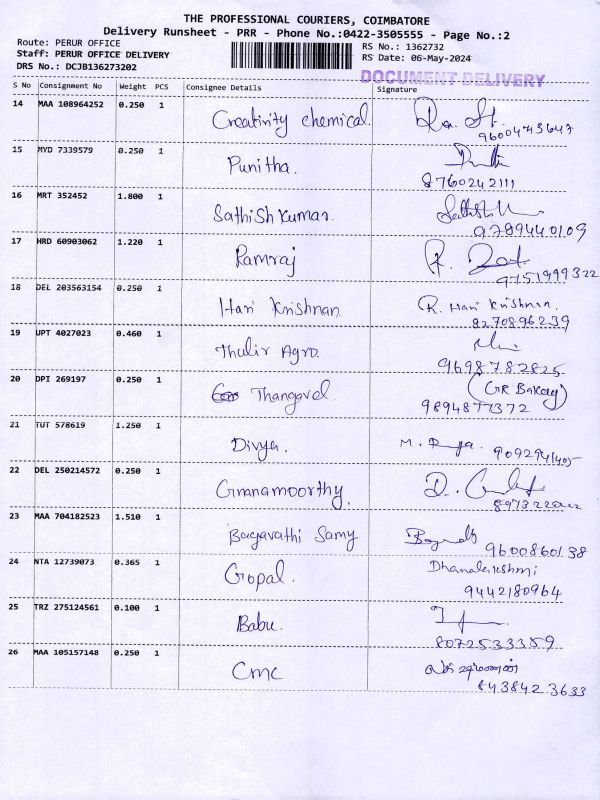 THE PROFESSIONAL COURIERS, COIMBATORE
Delivery Runsheet - PRR - Phone No.:0422-3505555 - Page No.:2
Route: PERUR OFFICE
Staff: PERUR OFFICE DELIVERY
DRS No.: DCJB136273202
RS No.: 1362732
RS Date: 06-May-2024
DOCUMENT DELIVERY
S No Consignment No Weight PCS Consignee Details Signature
14 MAA 108964252 0.250 1 Creativity chemical.
15 MYD 7339579 0.250 1 Punitha.
8760242111
16 MRT 352452 1.800 1 Sathish Kumar.
9789440109
17 HRD 60903062 1.220 1 Ramraj
9751999322
18 DEL 203563154 0.250 1 Hari Krishnan R. Hari Krishnan.
8270896239
19 UPT 4027023 0.460 1 Thulir Agro.
9698782825
20 DPI 269197 0.250 1 Thangavel. (GR Bakery)
9894877372
21 TUT 578619 1.250 1 Divya. M. Divya.
22 DEL 250214572 0.250 1 Gnanamoorthy.
23 MAA 704182523 1.510 1 Bagavathi Samy
9600860138
24 NTA 12739073 0.365 1 Gopal. Dhanalakshmi
9442180964
25 TRZ 275124561 0.100 1 Babu.
8072533359
26 MAA 105157148 0.250 1 CMC
8438423633